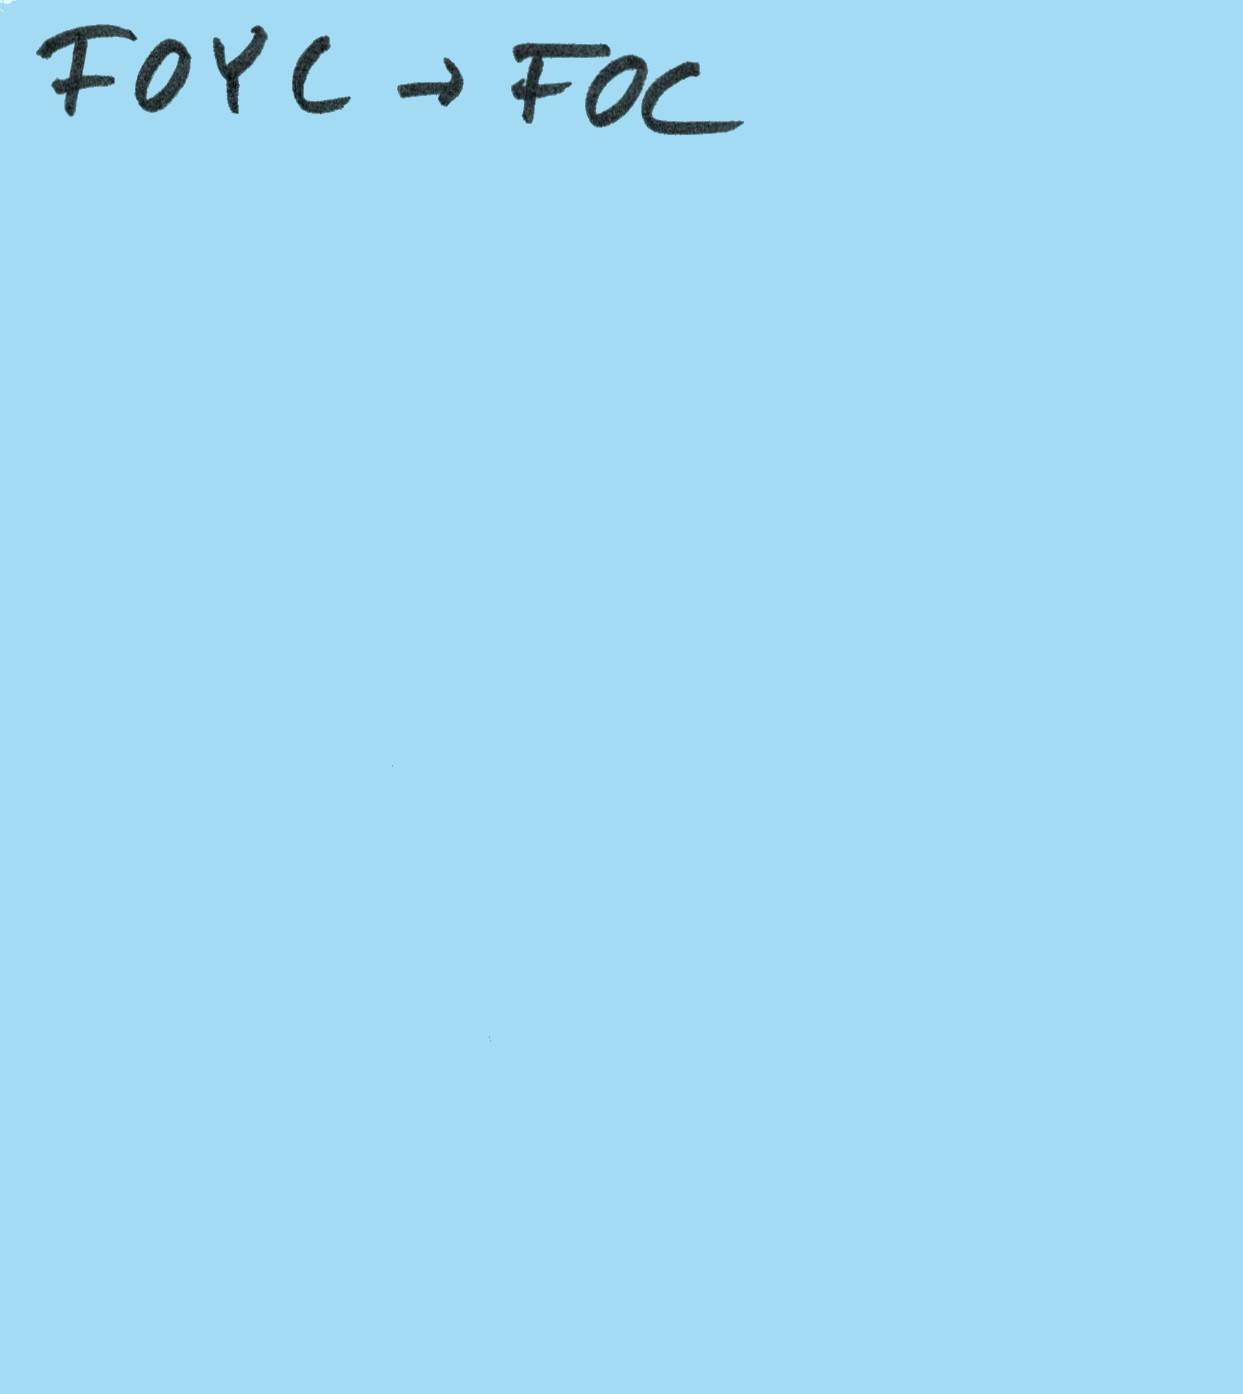 FOYC → FOC